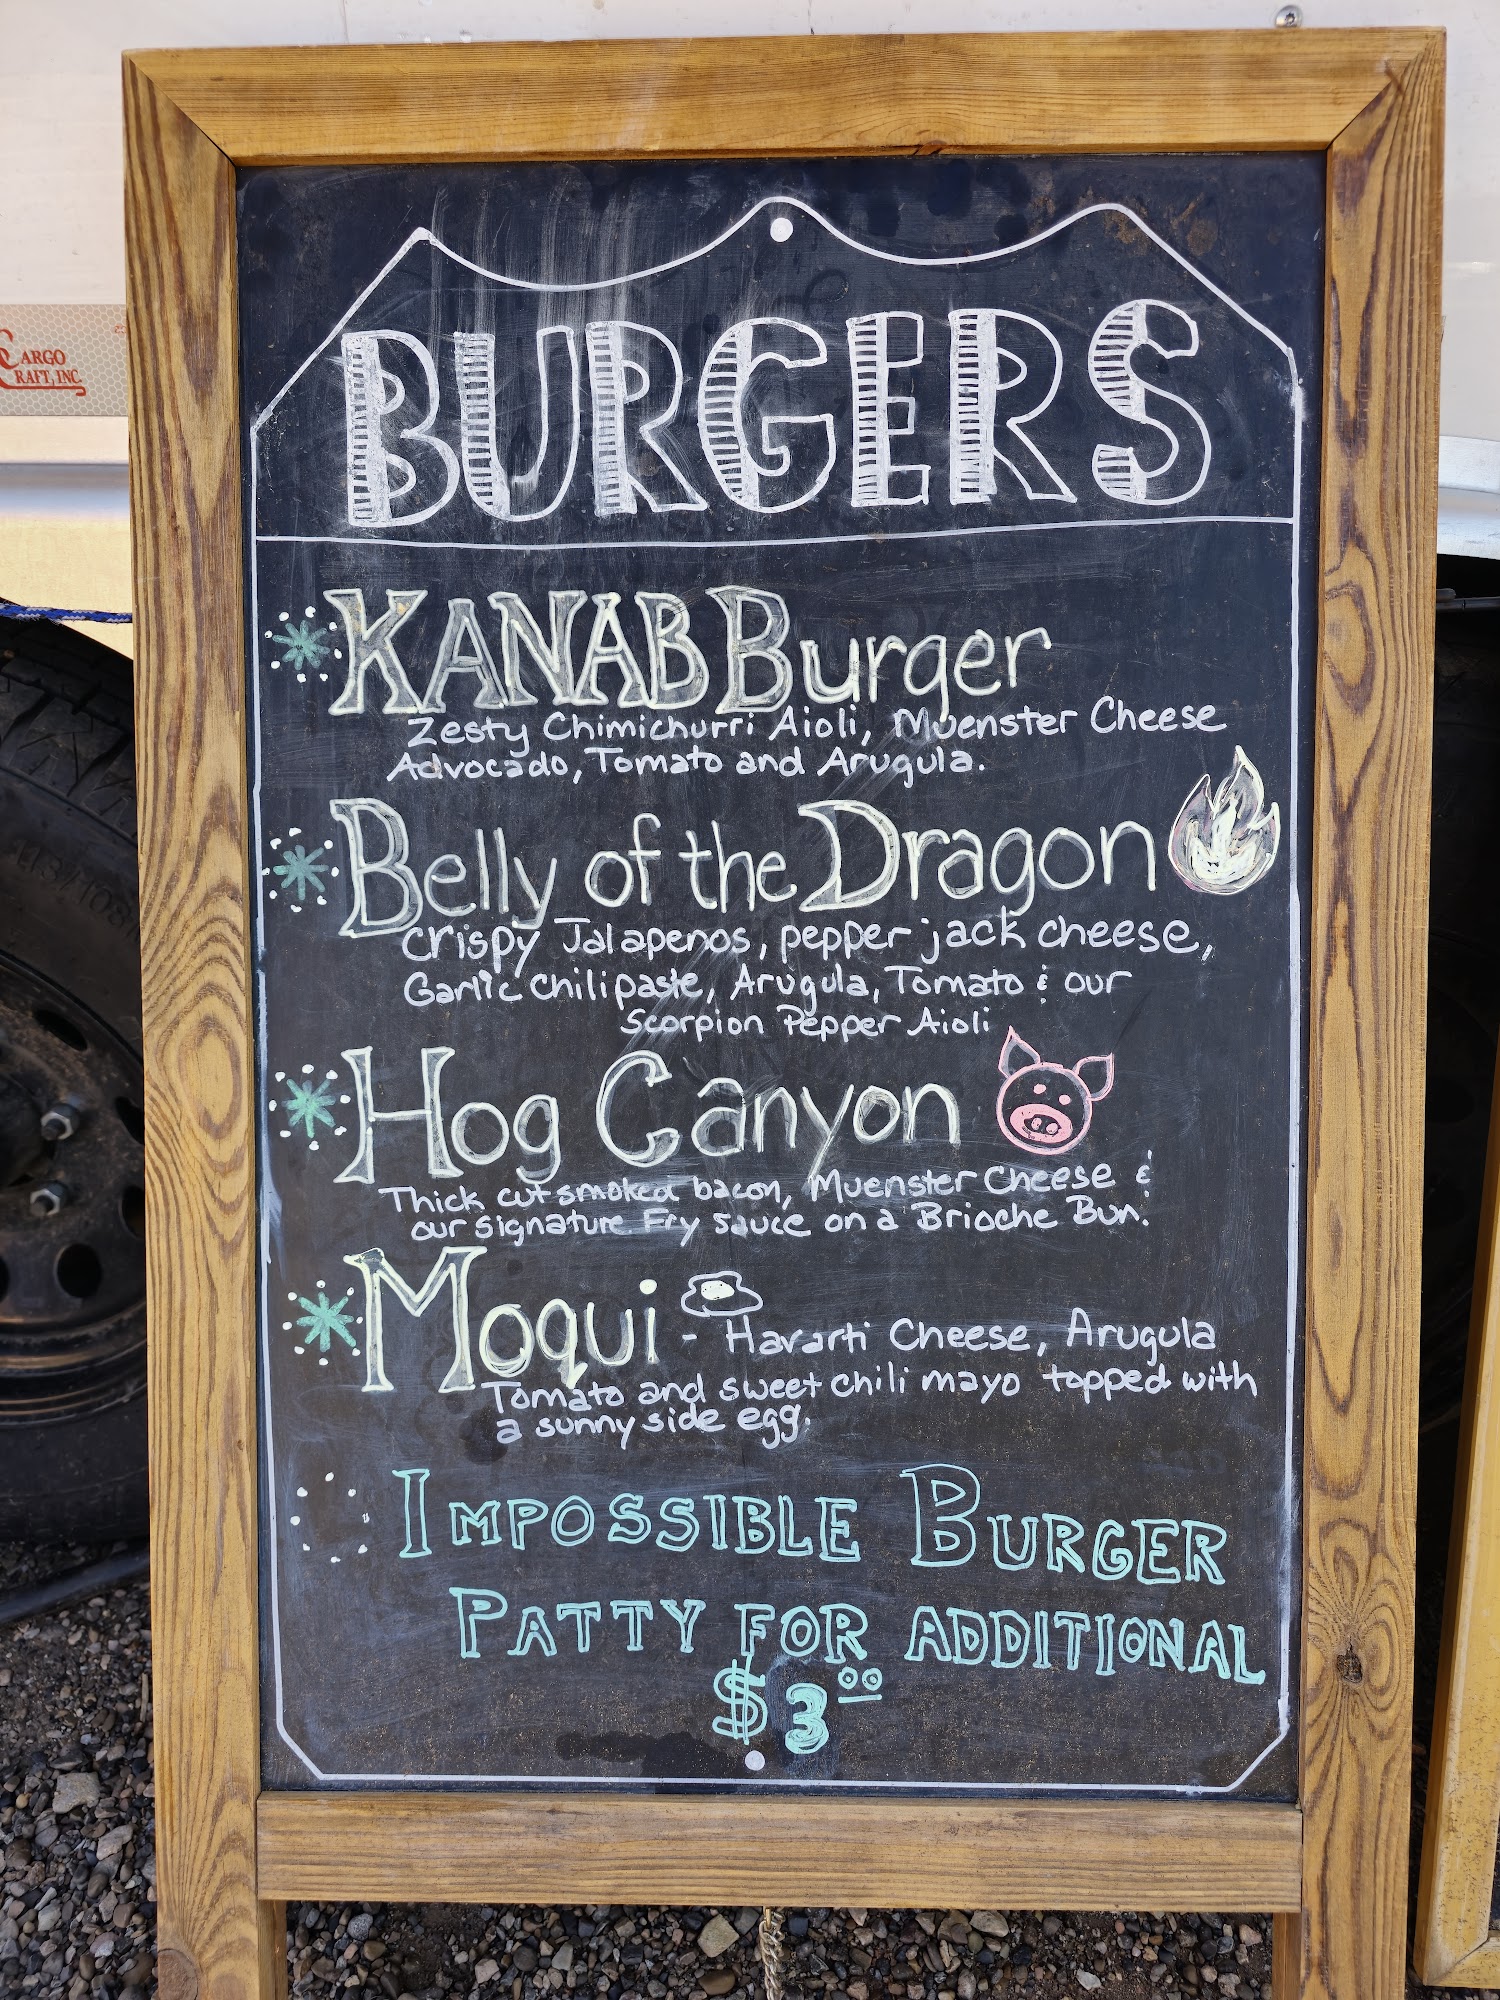 CARGO
CRAFT, INC.
BURGERS
KANAB Burger
Zesty Chimichurri Aioli, Muenster Cheese
Advocado, Tomato and Arugula.
Belly of the Dragon
Crispy Jalapenos, pepper jack cheese,
Garlic Chili paste, Arugula, Tomato & our
Scorpion Pepper Aioli
Hog Canyon
Thick cut smoked bacon, Muenster Cheese &
our signature Fry sauce on a Brioche Bun.
Moqui - Havarti Cheese, Arugula
Tomato and sweet chili mayo topped with
a sunny side egg.
IMPOSSIBLE BURGER
PATTY FOR ADDITIONAL
$3.00